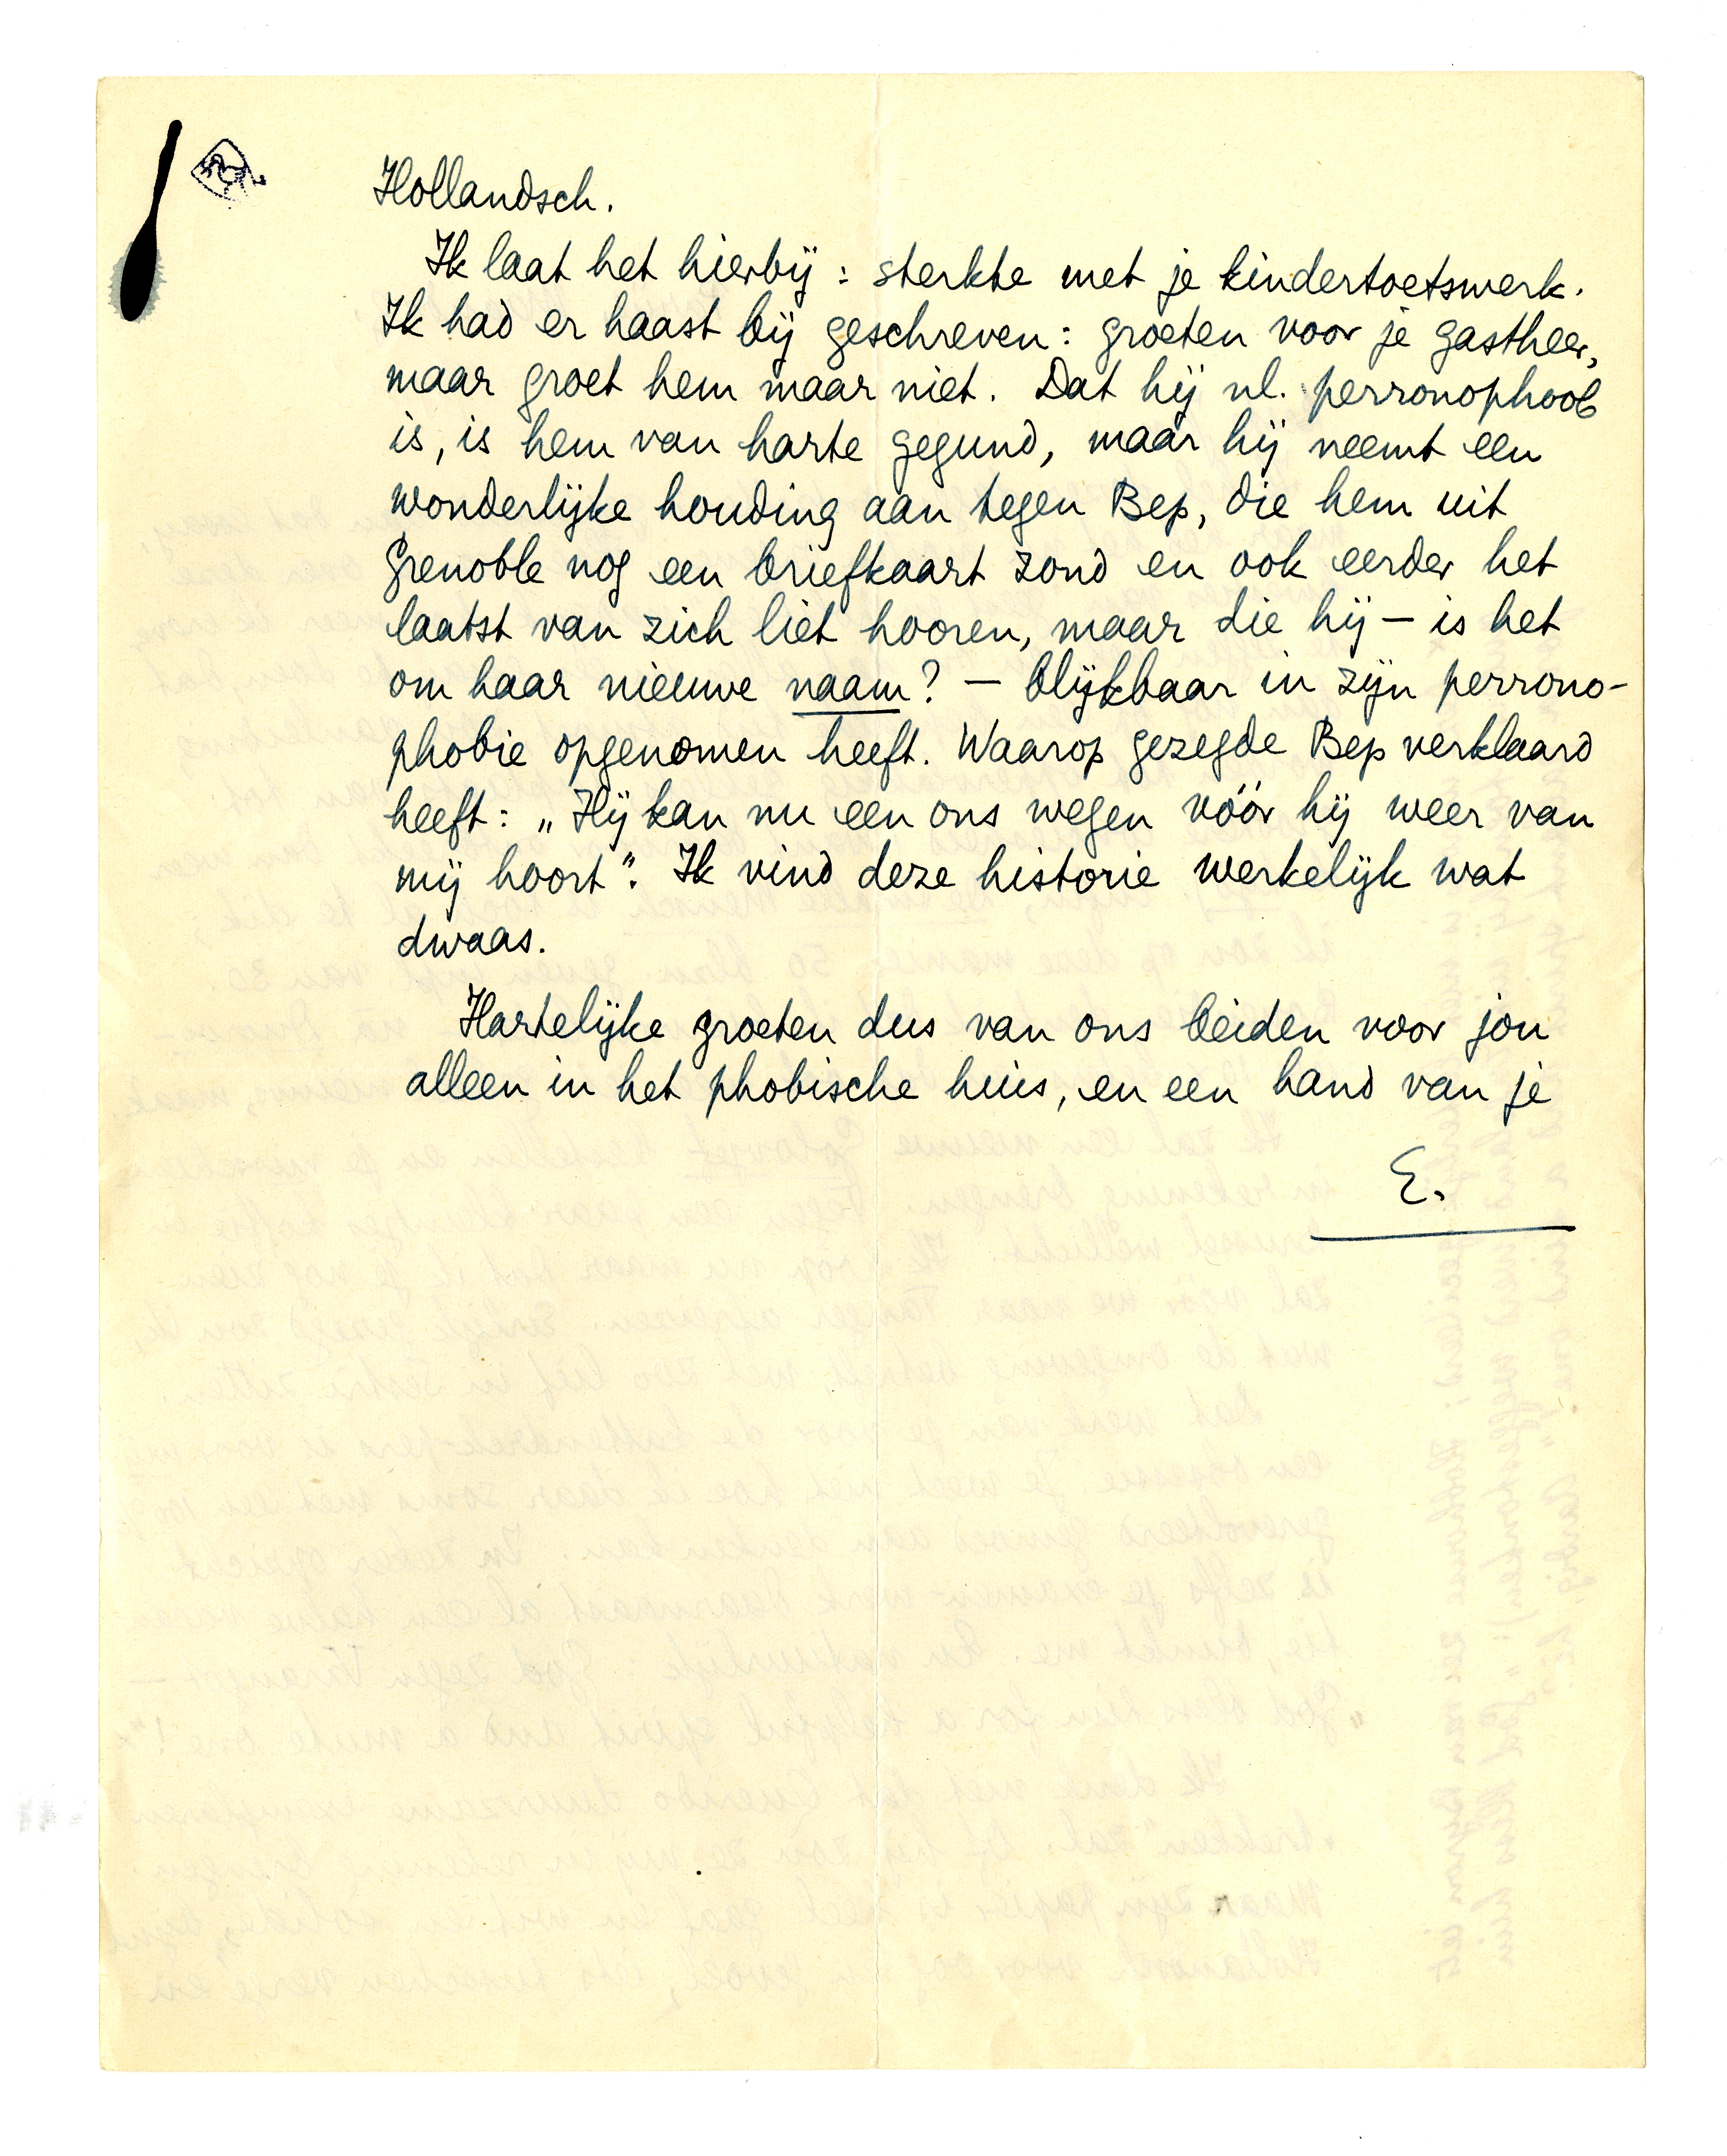 Hollandsch.
Ik laat het hierbij: sterkte met je kindertoetswerk.
Ik had er haast bij geschreven: groeten voor je gastheer,
maar groet hem maar niet. Dat hij nl. perronophoob
is, is hem van harte gegund, maar hij neemt een
wonderlijke houding aan tegen Bep, die hem uit
Grenoble nog een briefkaart zond en ook eerder het
laatst van zich liet hooren, maar die hij — is het
om haar nieuwe naam? — blijkbaar in zijn perrono-
phobie opgenomen heeft. Waarop gezegde Bep verklaard
heeft: „Hij kan nu een ons wegen vóór hij weer van
mij hoort". Ik vind deze historie werkelijk wat
dwaas.
Hartelijke groeten dus van ons beiden voor jou
alleen in het phobische huis, en een hand van je
E.